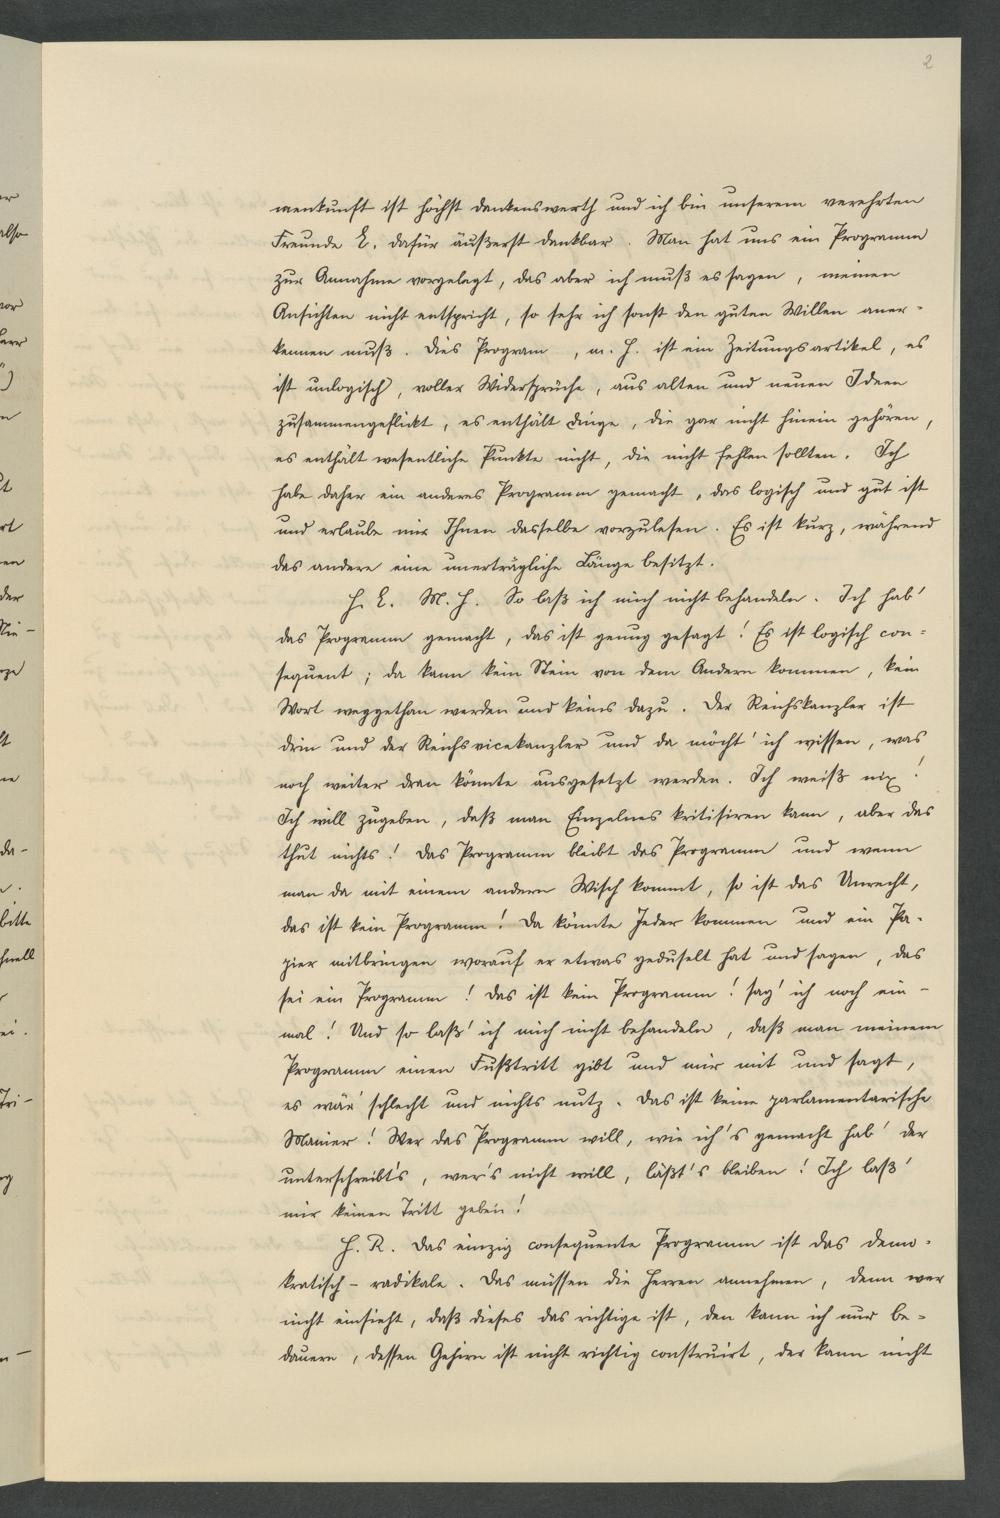 2
menkunft ist höchst dankenswerth und ich bin unserem verehrten
Freunde L. dafür äußerst dankbar. Man hat uns ein Programm
zur Annahme vorgelegt, das aber ich muß es sagen, meinen
Ansichten nicht entspricht, so sehr ich sonst den guten Willen aner-
kennen muß. Dies Program, m. H. ist ein Zeitungsartikel, es
ist unlogisch, voller Widersprüche, aus alten und neuen Ideen
zusammengeflickt, es enthält Dinge, die gar nicht hinein gehören,
es enthält wesentliche Punkte nicht, die nicht fehlen sollten. Ich
habe daher ein anderes Programm gemacht, das logisch und gut ist
und erlaube mir Ihnen dasselbe vorzulesen. Es ist kurz, während
das andere eine unerträgliche Länge besitzt.
H. L. M. H. So laß ich mich nicht behandeln. Ich hab'
das Programm gemacht, das ist genug gesagt! Es ist logisch con-
sequent; da kann kein Stein von dem Andern kommen, kein
Wort weggethan werden und keins dazu. Der Reichskanzler ist
drin und der Reichsvicekanzler und da möcht' ich wissen, was
noch weiter dran könnte ausgesetzt werden. Ich weiß nix!
Ich will zugeben, daß man Einzelnes kritisiren kann, aber das
thut nichts! Das Programm bleibt das Programm und wenn
man da mit einem andern Wisch kommt, so ist das Unrecht,
das ist kein Programm! Da könnte Jeder kommen und ein Pa-
pier mitbringen worauf er etwas geduselt hat und sagen, das
sei ein Programm! Das ist kein Programm! sag' ich noch ein-
mal! Und so laß' ich mich nicht behandeln, daß man meinem
Programm einen Fußtritt gibt und mir mit und sagt,
es wär' schlecht und nichts nutz. Das ist keine parlamentarische
Manier! Wer das Programm will, wie ich's gemacht hab' der
unterschreibt's, wer's nicht will, läßt's bleiben! Ich laß'
mir keinen Tritt geben!
H. R. Das einzig consequente Programm ist das demo-
kratisch-radikale. Das müssen die Herren annehmen, denn wer
nicht einsieht, daß dieses das richtige ist, den kann ich nur be-
dauern, dessen Gehirn ist nicht richtig construirt, der kann nicht